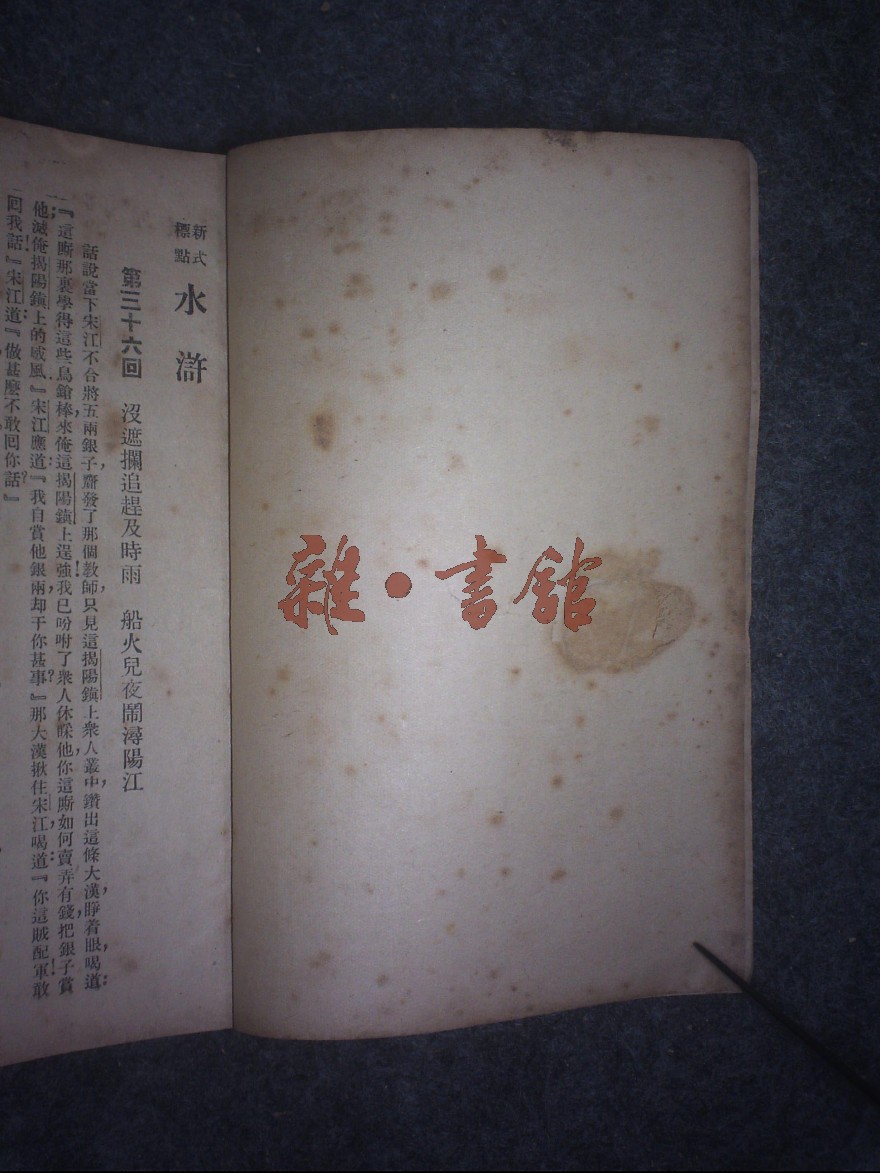 新式標點 水滸
第三十六回 沒遮攔追趕及時雨 船火兒夜鬧潯陽江
話說當下宋江不合將五兩銀子，齎發了那個教師，只見這揭陽鎭上衆人叢中，鑽出這條大漢，睜着眼，喝道：
『這廝那裏學得這些鳥鎗棒，來俺這揭陽鎭上逞強！我已吩咐了衆人休睬他，你這廝如何賣弄有錢，把銀子賞
他；滅俺揭陽鎭上的威風！』宋江應道：『我自賞他銀兩，却干你甚事？』那大漢揪住宋江，喝道：『你這賊配軍！敢
回我話！』宋江道：『做甚麽不敢回你話？』
雜·書館